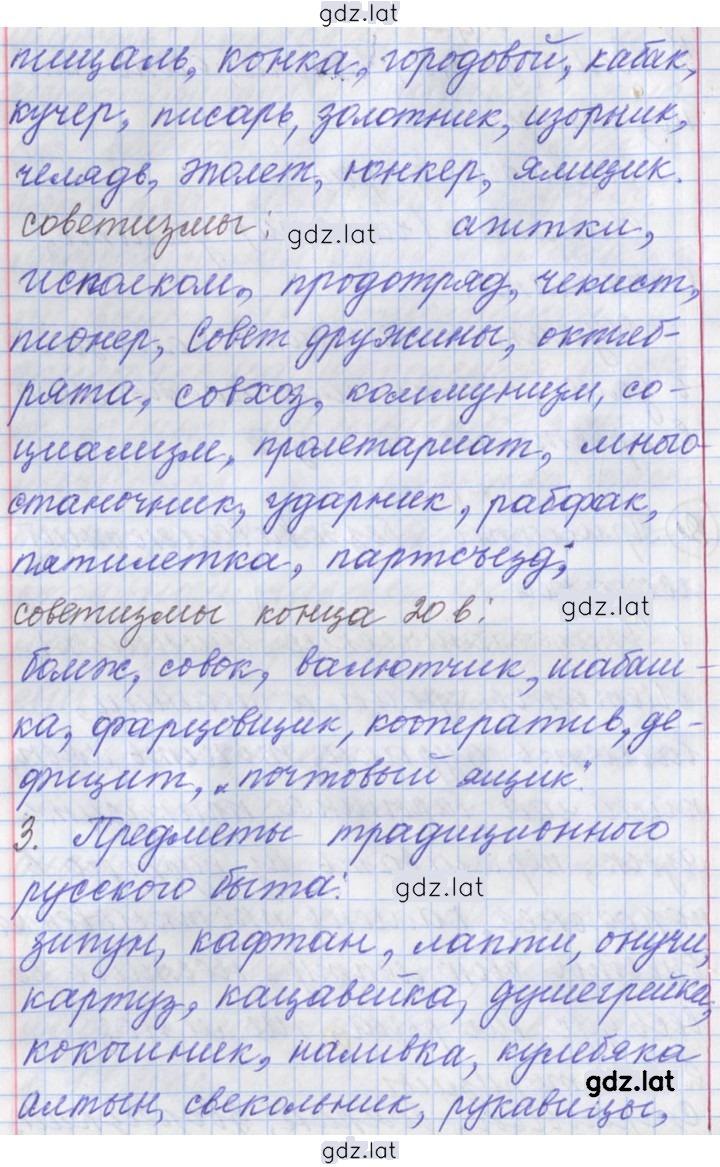 gdz.lat
пищаль, конка, городовой, кабак,
кучер, писарь, золотник, изорник,
челядь, эполет, юнкер, ямщик.
советизмы: gdz.lat
исполком, продотряд, чекист,
пионер, Совет дружины, октяб-
рята, совхоз, коммунизм, со-
циализм, пролетариат, много-
станочник, ударник, рабфак,
пятилетка, партсъезд;
советизмы конца 20 в: gdz.lat
бомж, совок, валютчик, шабаш-
ка, фарцовщик, кооператив, де-
фицит, „почтовый ящик".
3. Предметы традиционного
русского быта: gdz.lat
зипун, кафтан, лапти, онучи,
картуз, кацавейка, душегрейка,
кокошник, наливка, кулебяка
gdz.lat
алтын, свекольник, рукавицы,
gdz.lat